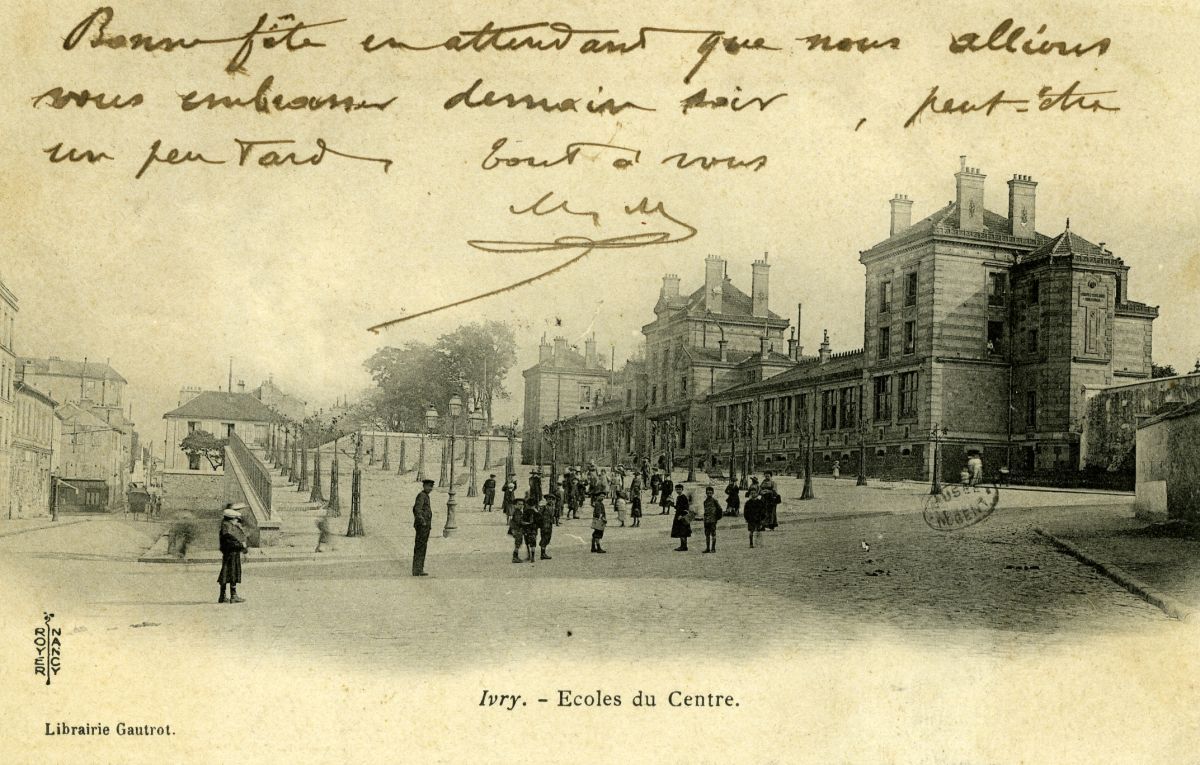 Bonne fête en attendant que nous allions
vous embrasser demain soir, peut-être
un peu tard tout à vous
ROYER
NANCY
Ivry. - Ecoles du Centre.
Librairie Gautrot.
MUSÉE
NOGENT